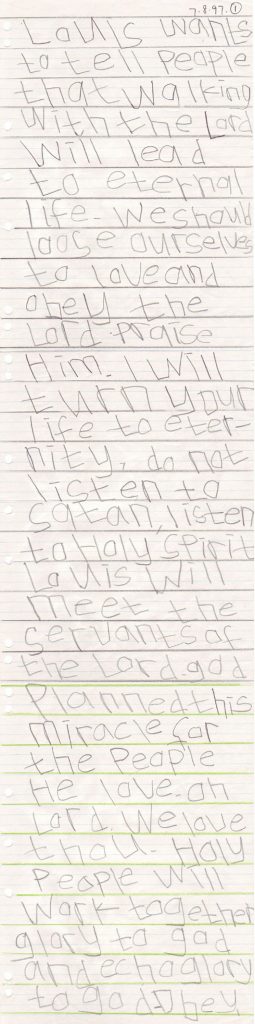 7.8.97. ①
Louis wants
to tell People
that walking
with the Lord
will lead
to eternal
life. we should
loose ourselves
to love and
obey the
Lord. Praise
Him. I Will
turn your
life to eter-
nity, do not
listen to
satan, listen
to Holy Spirit
Louis Will
meet the
servants of
the Lord. god
Planned this
miracle for
the People
He love. oh
Lord. We love
thou. Holy
People Will
Work together
glory to god
and echo glory
to god. Obey,